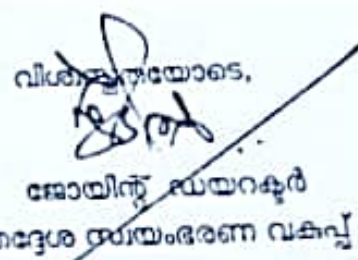 വിശ്വസ്തതയോടെ,
ജോയിന്റ് ഡയറക്ടർ
തദ്ദേശ സ്വയംഭരണ വകുപ്പ്